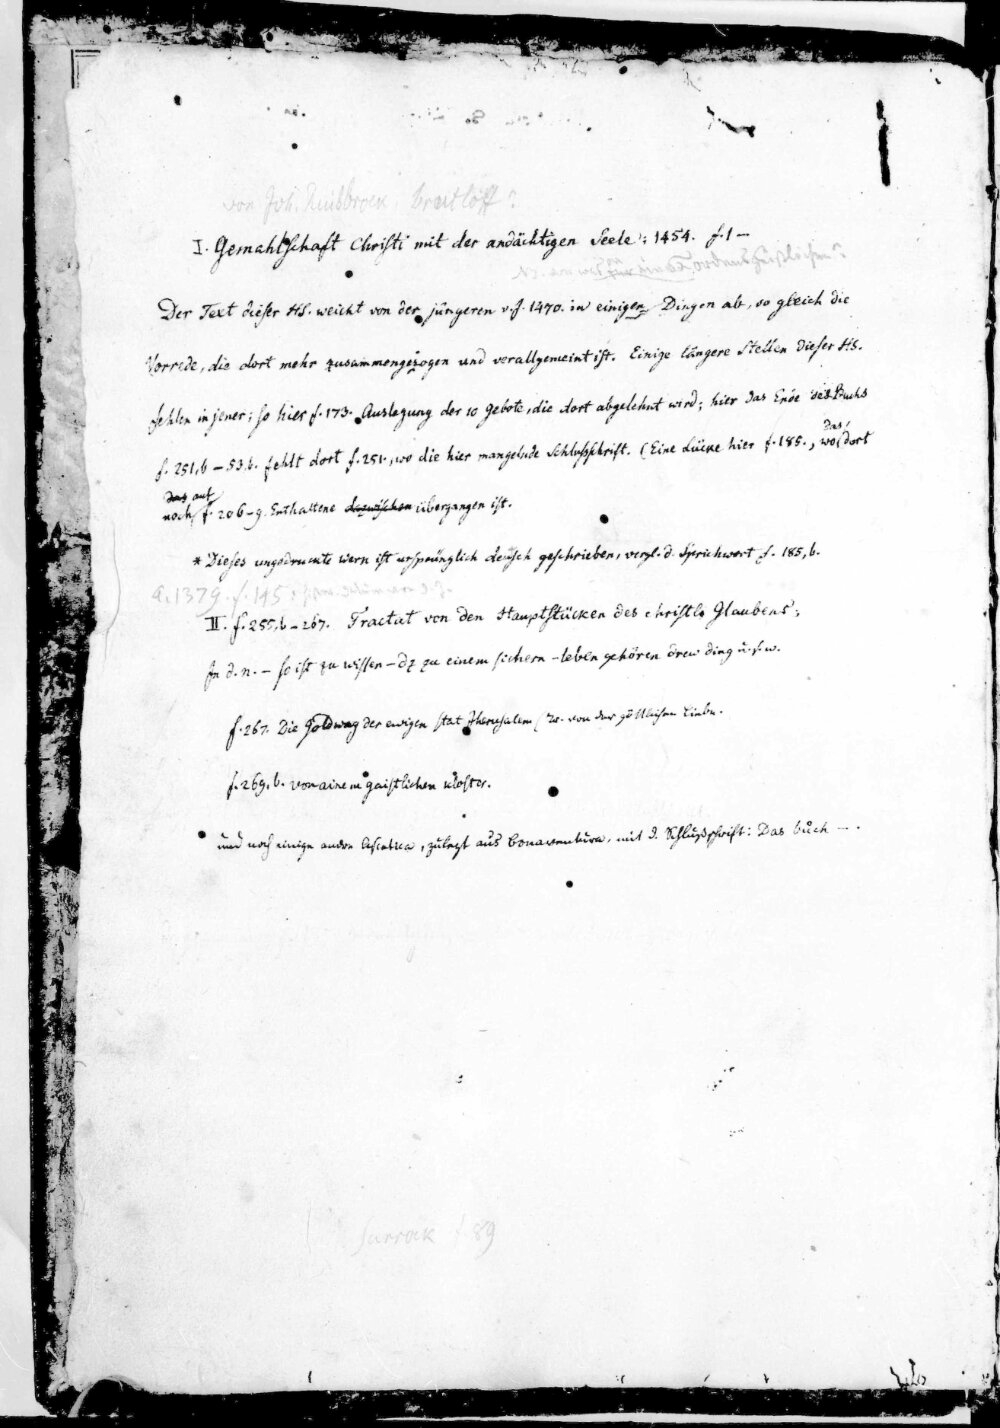 von Joh.
I. Gemahlschaft Christi mit der andächtigen Seele: 1454. f. 1 —
Der Text dieser HS. weicht von der jüngeren v. J. 1470. in einigen Dingen ab, so gleich die
Vorrede, die dort mehr zusammengezogen und verallgemeint ist. Einige längere Stellen dieser HS.
fehlen in jener; so hier f. 173. Auslegung der 10 Gebote, die dort abgelehnt wird; hier das Ende des Buchs
f. 251,b – 53.b. fehlt dort f. 251, wo die hier mangelnde Schlußschrift. (Eine Lücke hier f. 185., wo das dort
noch auf f. 206–9. Enthaltene dazwischen übergangen ist.
* Dieses ungedruckte Werk ist ursprünglich deutsch geschrieben, vergl. d. Sprichwort f. 185,b.
a. 1379. f. 145
II. f. 255,b – 267. Tractat von den Hauptstücken des christl. Glaubens:
In d. n. – so ist zu wissen – dz zu einem sichern leben gehören drew ding u.s.w.
f. 267. Die Goldwag der ewigen stat Jherusalem (Tr. von der göttlichen Liebe.
f. 269,b. von ainem gaistlichen kloster.
und noch einige andre Ascetica, zuletzt aus Bonaventura, mit d. Schlußschrift: Das buch — .
89